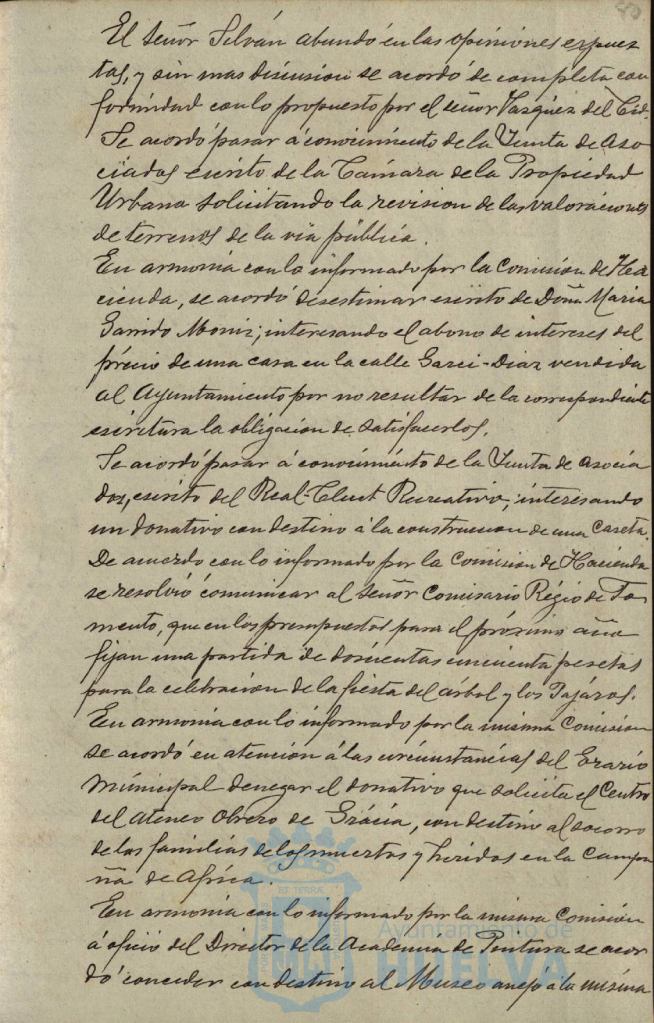 El señor Silván abundó en las opiniones expues
tas, y sin mas discusion se acordó de completa con
formidad con lo propuesto por el señor Vazquez del Cid.
Se acordó pasar á conocimiento de la Junta de Aso
ciados escrito de la Cámara de la Propiedad
Urbana solicitando la revision de las valoraciones
de terrenos de la via pública.
En armonia con lo informado por la Comision de Ha
cienda, se acordó desestimar escrito de Doña Maria
Garrido Moniz; interesando el abono de intereses del
precio de una casa en la calle Garci-Diaz vendida
al Ayuntamiento por no resultar de la correspondiente
escritura la obligacion de satisfacerlos.
Se acordó pasar á conocimiento de la Junta de Asocia
dos, escrito del Real-Club Recreativo, interesando
un donativo con destino á la construccion de una caseta.
De acuerdo con lo informado por la Comision de Hacienda
se resolvió comunicar al señor Comisario Régio de Fo
mento, que en los presupuestos para el próximo año
fijan una partida de doscientas cincuenta pesetas
para la celebracion de la fiesta del árbol y los Pajáros.
En armonia con lo informado por la misma Comision
se acordó en atencion á las circunstancias del Erario
Municipal denegar el donativo que solicita el Centro
del Ateneo Obrero de Grácia, con destino al socorro
de las familias de los muertos y heridos en la Campa
ña de Africa.
En armonia con lo informado por la misma Comision
á oficio del Director de la Academia de Pintura se acor
dó conceder con destino al Museo anejo á la misma
Ayuntamiento de
HUELVA